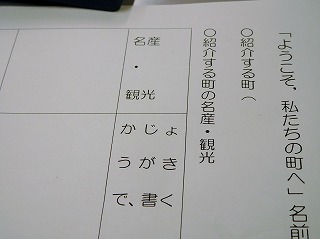 「ようこそ、私たちの町へ」名前
〇紹介する町（
〇紹介する町の名産・観光
名産
・
観光
かじょ
うがき
で、書く